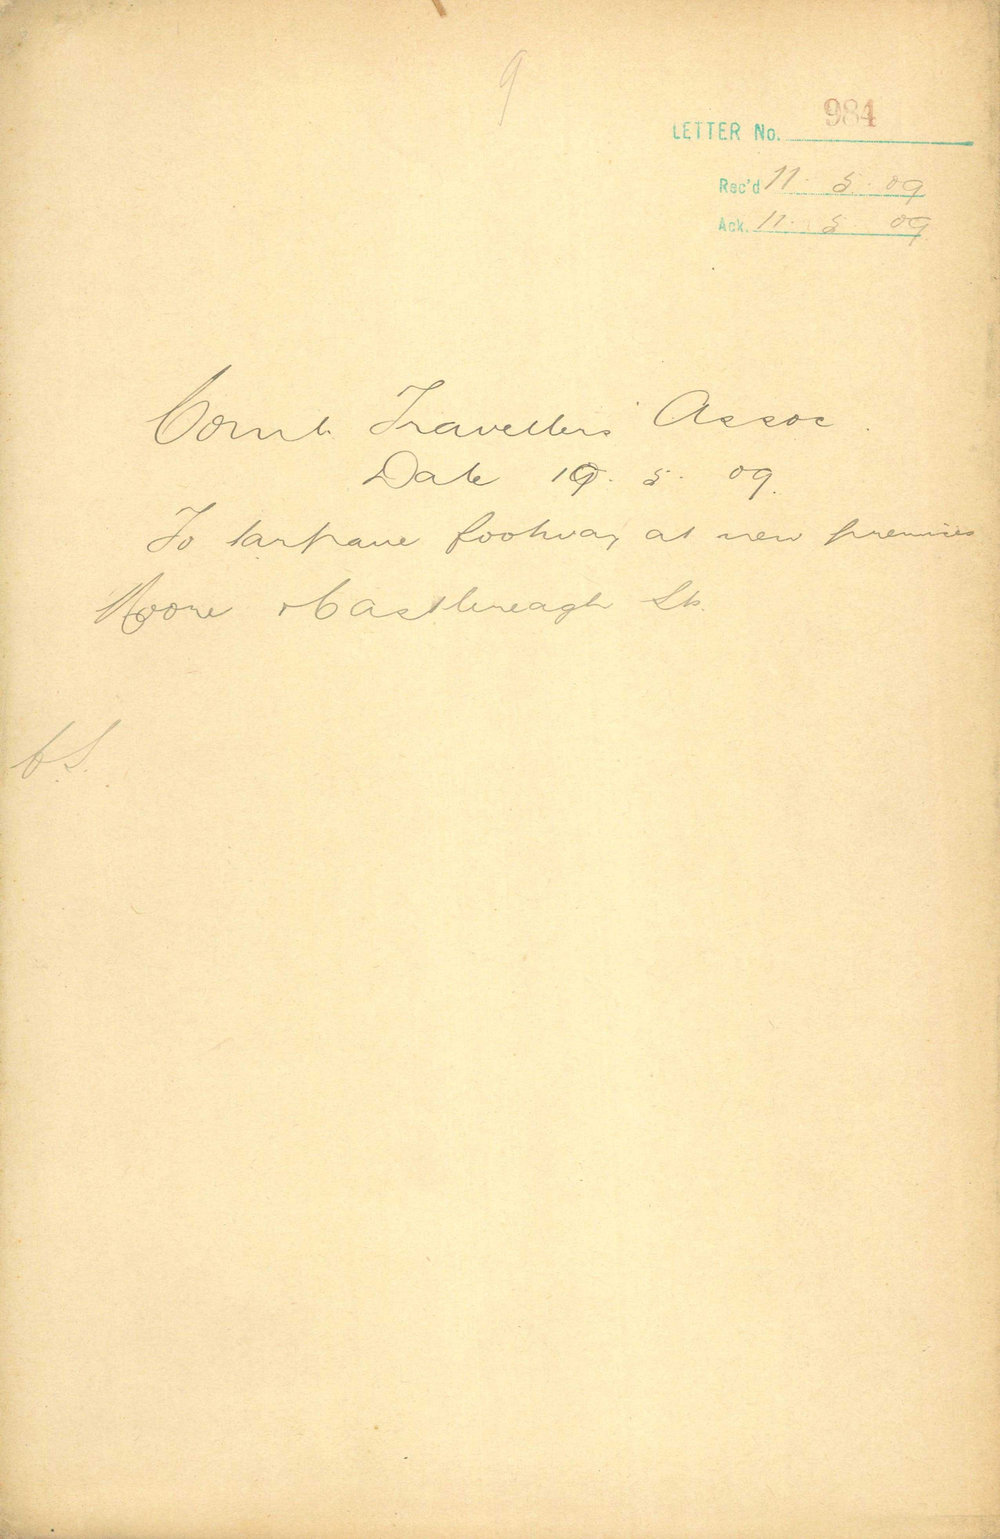 9
LETTER No. 984
Rec'd 11. 5. 09
Ack. 11. 5. 09
Coml. Travellers' Assoc.
Date 10. 5. 09.
To tarpave footway at new premises
Moore & Castlereagh Sts.
C.S.